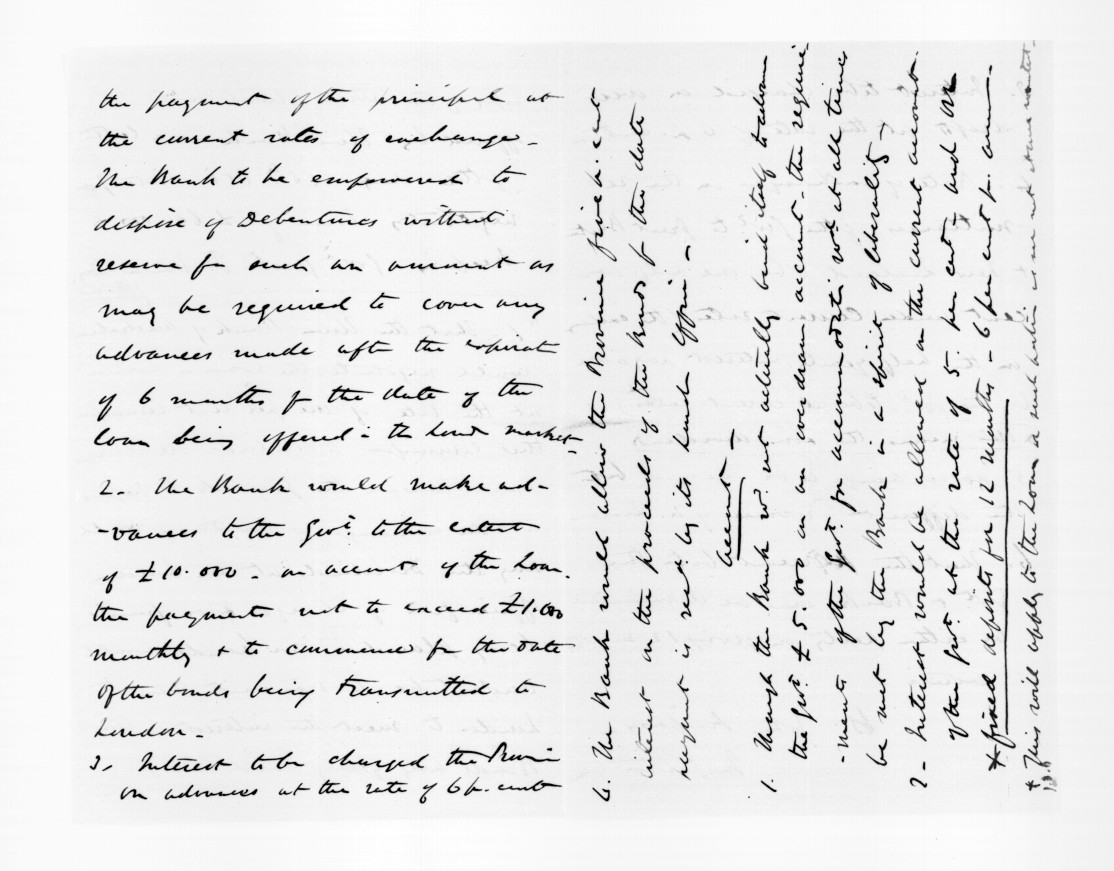 the payment of the principal at
the current rates of exchange -
The Bank to be empowered to
dispose of Debentures without
reserve for such an amount as
may be required to cover any
advances made after the expirat
of 6 months fr the date of the
loan being offered in the Lond market
2 - The Bank would make ad-
-vances to the Govt. to the extent
of £10.000 - on account of the loan.
the payments not to exceed £1.000
monthly & to commence fr the date
of the bonds being transmitted to
London -
3, Interest to be charged the Provin
on advances at the rate of 6 pr. cent
4. The Bank would allow the Province five pr. cent
interest on the proceeds of the bonds fr the date
receipt is recd by its London Office -
Account -
1. Though the Bank wd. not actually bind itself to allow
the Govt. £5.000 as an overdrawn account - the require
-ments of the Govt. for accommodation wd. at all times
be met by the Bank in a spirit of liberality +
2 - Interest would be allowed on the current account
of the Govt. at the rate of 5 per cent - and on
* fixed deposits for 12 months - 6 per cent pr. ann -
* This will apply to the loan